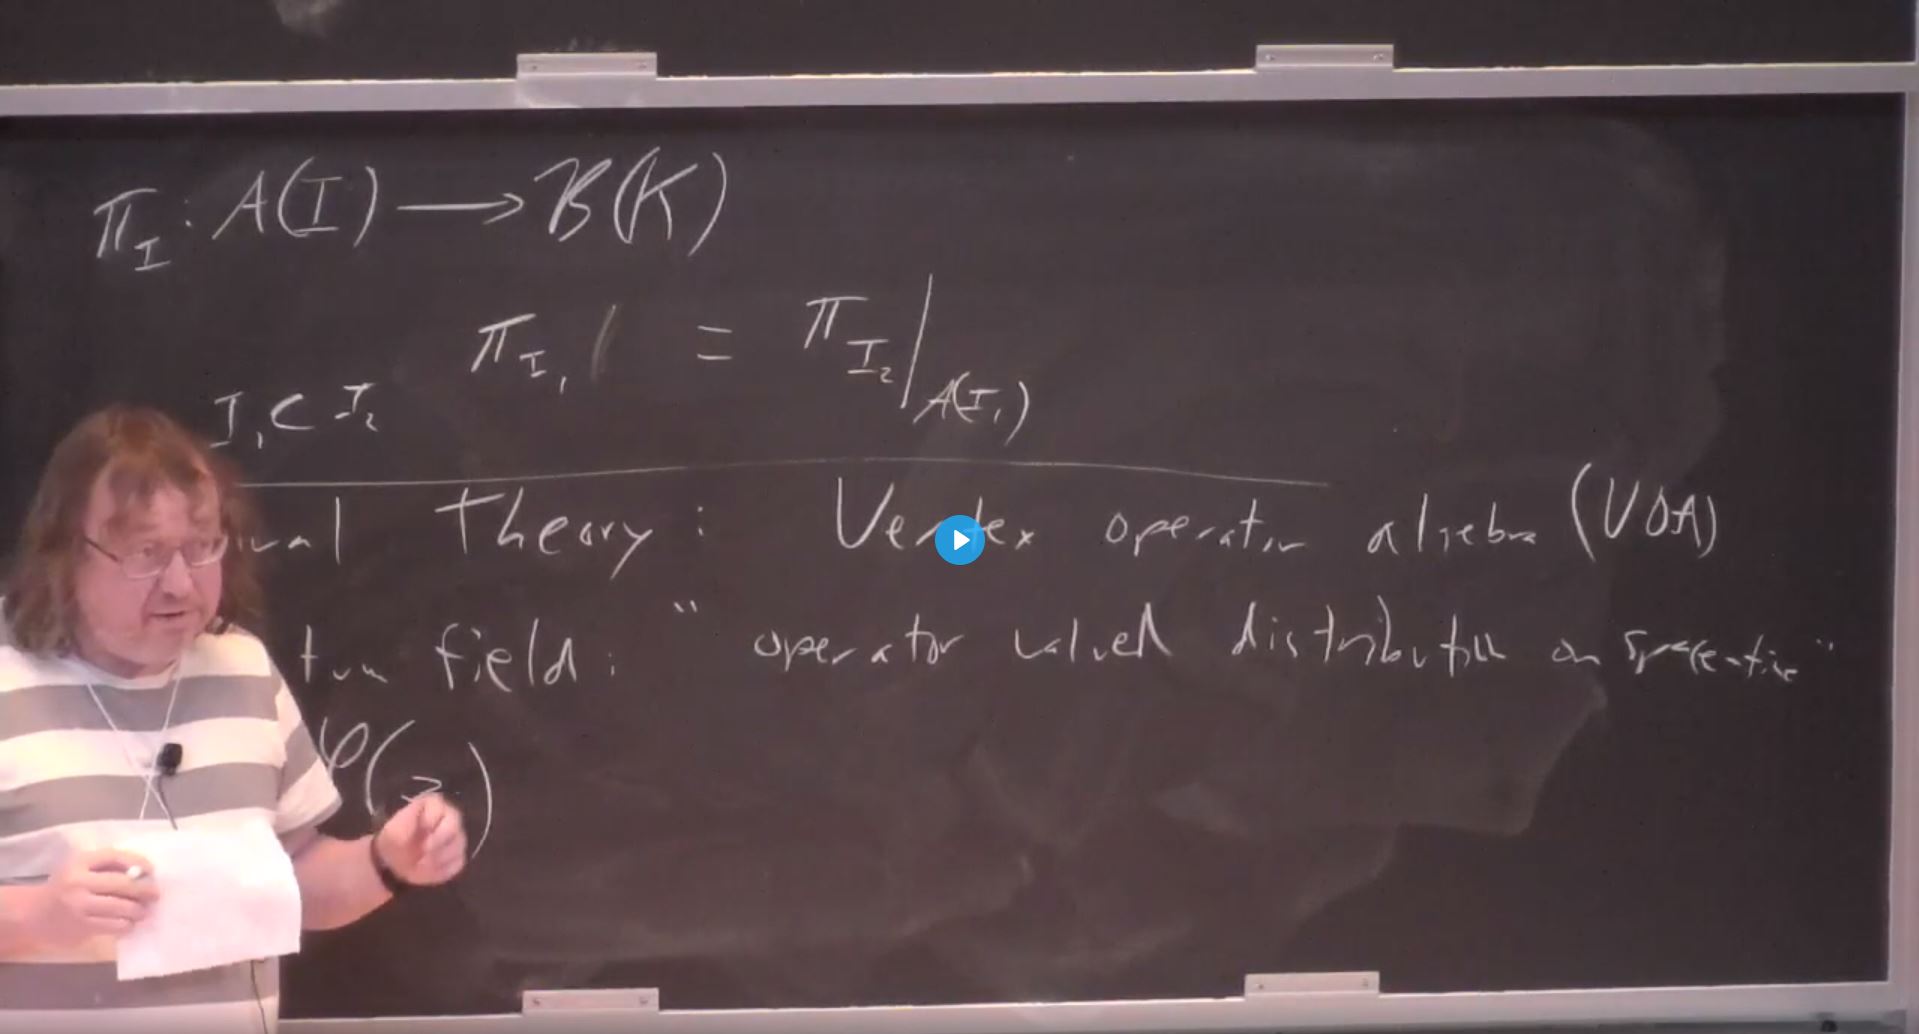 π_I : A(I) → B(K)
π_{I_1} = π_{I_2}|_{A(I_1)}
I_1 ⊂ I_2
Theory : Vertex operator algebra (VOA)
field : " operator valued distribution on spacetime "
φ(z)